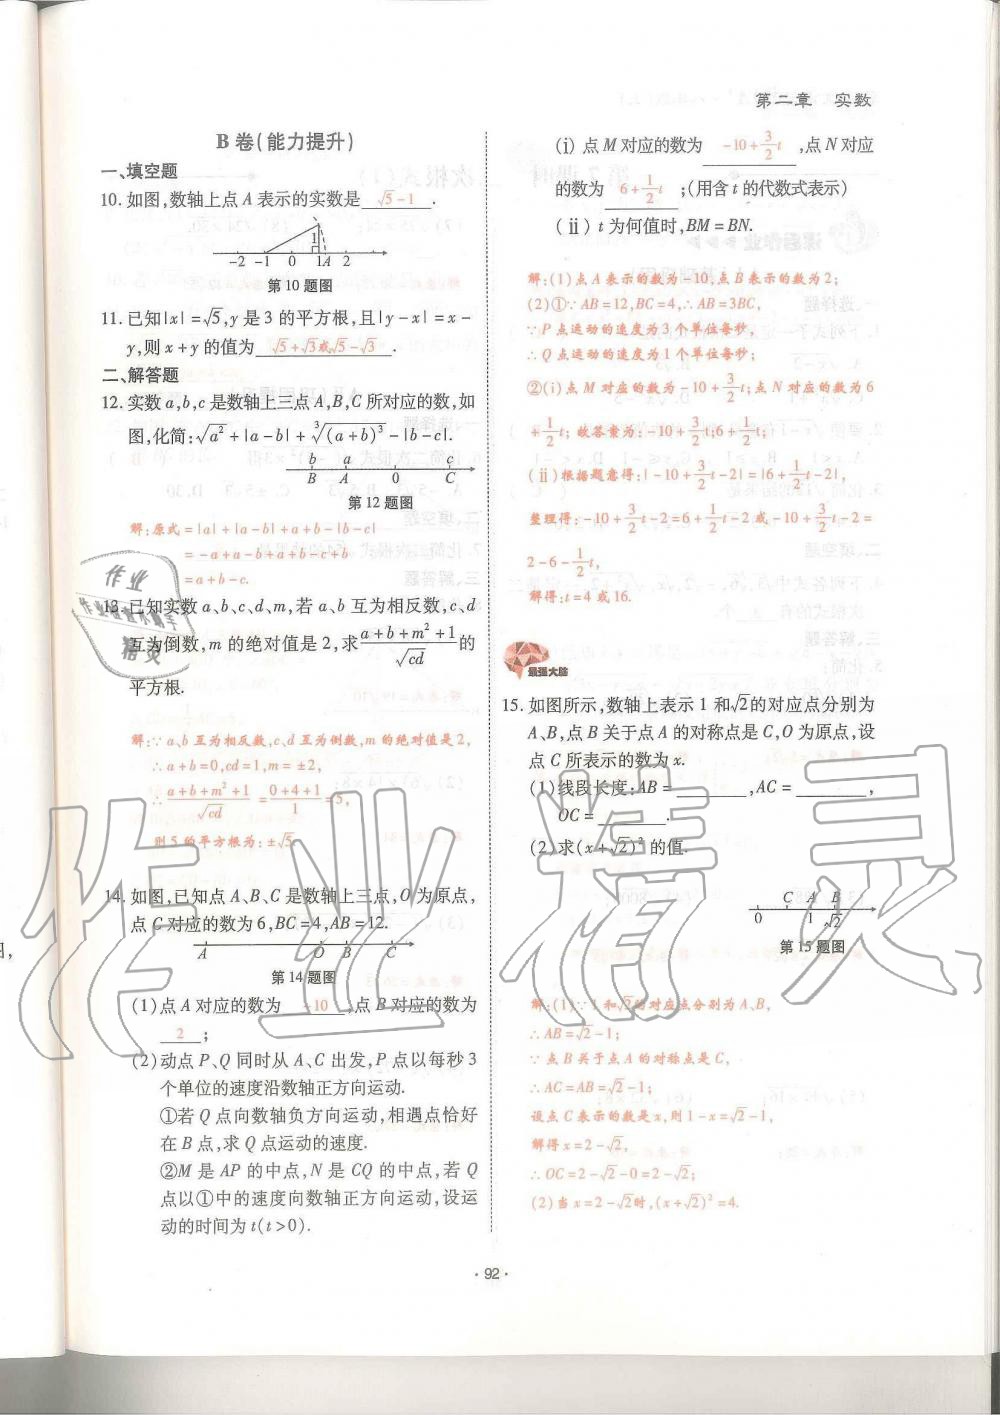 第二章 实数
B卷(能力提升)
一、填空题
10.如图,数轴上点A表示的实数是 √5-1 .
1
-2 -1 0 1A 2
第10题图
11.已知|x|=√5,y是3的平方根,且|y-x|=x-
y,则x+y的值为 √5+√3或√5-√3 .
二、解答题
12.实数a,b,c是数轴上三点A,B,C所对应的数,如
图,化简:√a²+|a-b|+∛(a+b)³-|b-c|.
b a 0 c
B A C
第12题图
解:原式=|a|+|a-b|+a+b-|b-c|
=-a+a-b+a+b-c+b
=a+b-c.
13.已知实数a、b、c、d、m,若a、b互为相反数,c、d
互为倒数,m的绝对值是2,求(a+b+m²+1)/√cd的
平方根.
解:∵a、b互为相反数,c、d互为倒数,m的绝对值是2,
∴a+b=0,cd=1,m=±2,
∴(a+b+m²+1)/√cd=(0+4+1)/1=5,
则5的平方根为:±√5.
14.如图,已知点A、B、C是数轴上三点,O为原点,
点C对应的数为6,BC=4,AB=12.
A O B C
第14题图
(1)点A对应的数为 -10 ,点B对应的数为
2 ;
(2)动点P、Q同时从A、C出发,P点以每秒3
个单位的速度沿数轴正方向运动.
①若Q点向数轴负方向运动,相遇点恰好
在B点,求Q点运动的速度.
②M是AP的中点,N是CQ的中点,若Q
点以①中的速度向数轴正方向运动,设运
动的时间为t(t>0).
(ⅰ)点M对应的数为 -10+3/2t ,点N对应
的数为 6+1/2t ;(用含t的代数式表示)
(ⅱ)t为何值时,BM=BN.
解:(1)点A表示的数为-10,点B表示的数为2;
(2)①∵AB=12,BC=4,∴AB=3BC,
∵P点运动的速度为3个单位每秒,
∴Q点运动的速度为1个单位每秒;
②(ⅰ)点M对应的数为-10+3/2t;点N对应的数为6
+1/2t;故答案为:-10+3/2t;6+1/2t;
(ⅱ)根据题意得:|-10+3/2t-2|=|6+1/2t-2|,
整理得:-10+3/2t-2=6+1/2t-2或-10+3/2t-2=
2-6-1/2t,
解得:t=4或16.
最强大脑
15.如图所示,数轴上表示1和√2的对应点分别为
A、B,点B关于点A的对称点是C,O为原点,设
点C所表示的数为x.
(1)线段长度:AB=______,AC=______,
OC=______.
(2)求(x+√2)²的值.
C A B
0 1 √2
第15题图
解:(1)∵1和√2的对应点分别为A、B,
∴AB=√2-1;
∵点B关于点A的对称点是C,
∴AC=AB=√2-1;
设点C表示的数是x,则1-x=√2-1,
解得x=2-√2,
∴OC=2-√2-0=2-√2;
(2)当x=2-√2时,(x+√2)²=4.
·92·
作业精灵